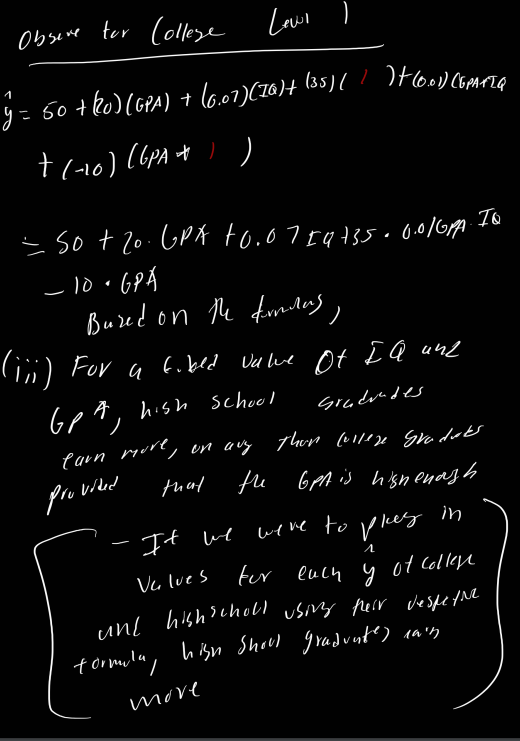 Observe for College Level 1
ŷ = 50 + (20)(GPA) + (0.07)(IQ) + (35)( 1 ) + (0.01)(GPA*IQ
+ (-10) (GPA * 1 )
= 50 + 20 · GPA + 0.07 IQ + 35 · 0.01 GPA · IQ
- 10 · GPA
Based on the formulas,
(iii) For a fixed value of IQ and
GPA, high school graduates
earn more, on avg than college graduates
provided that the GPA is high enough
- If we were to plug in
values for each ŷ of college
and highschool using their respective
formula, high shool graduates earn
more